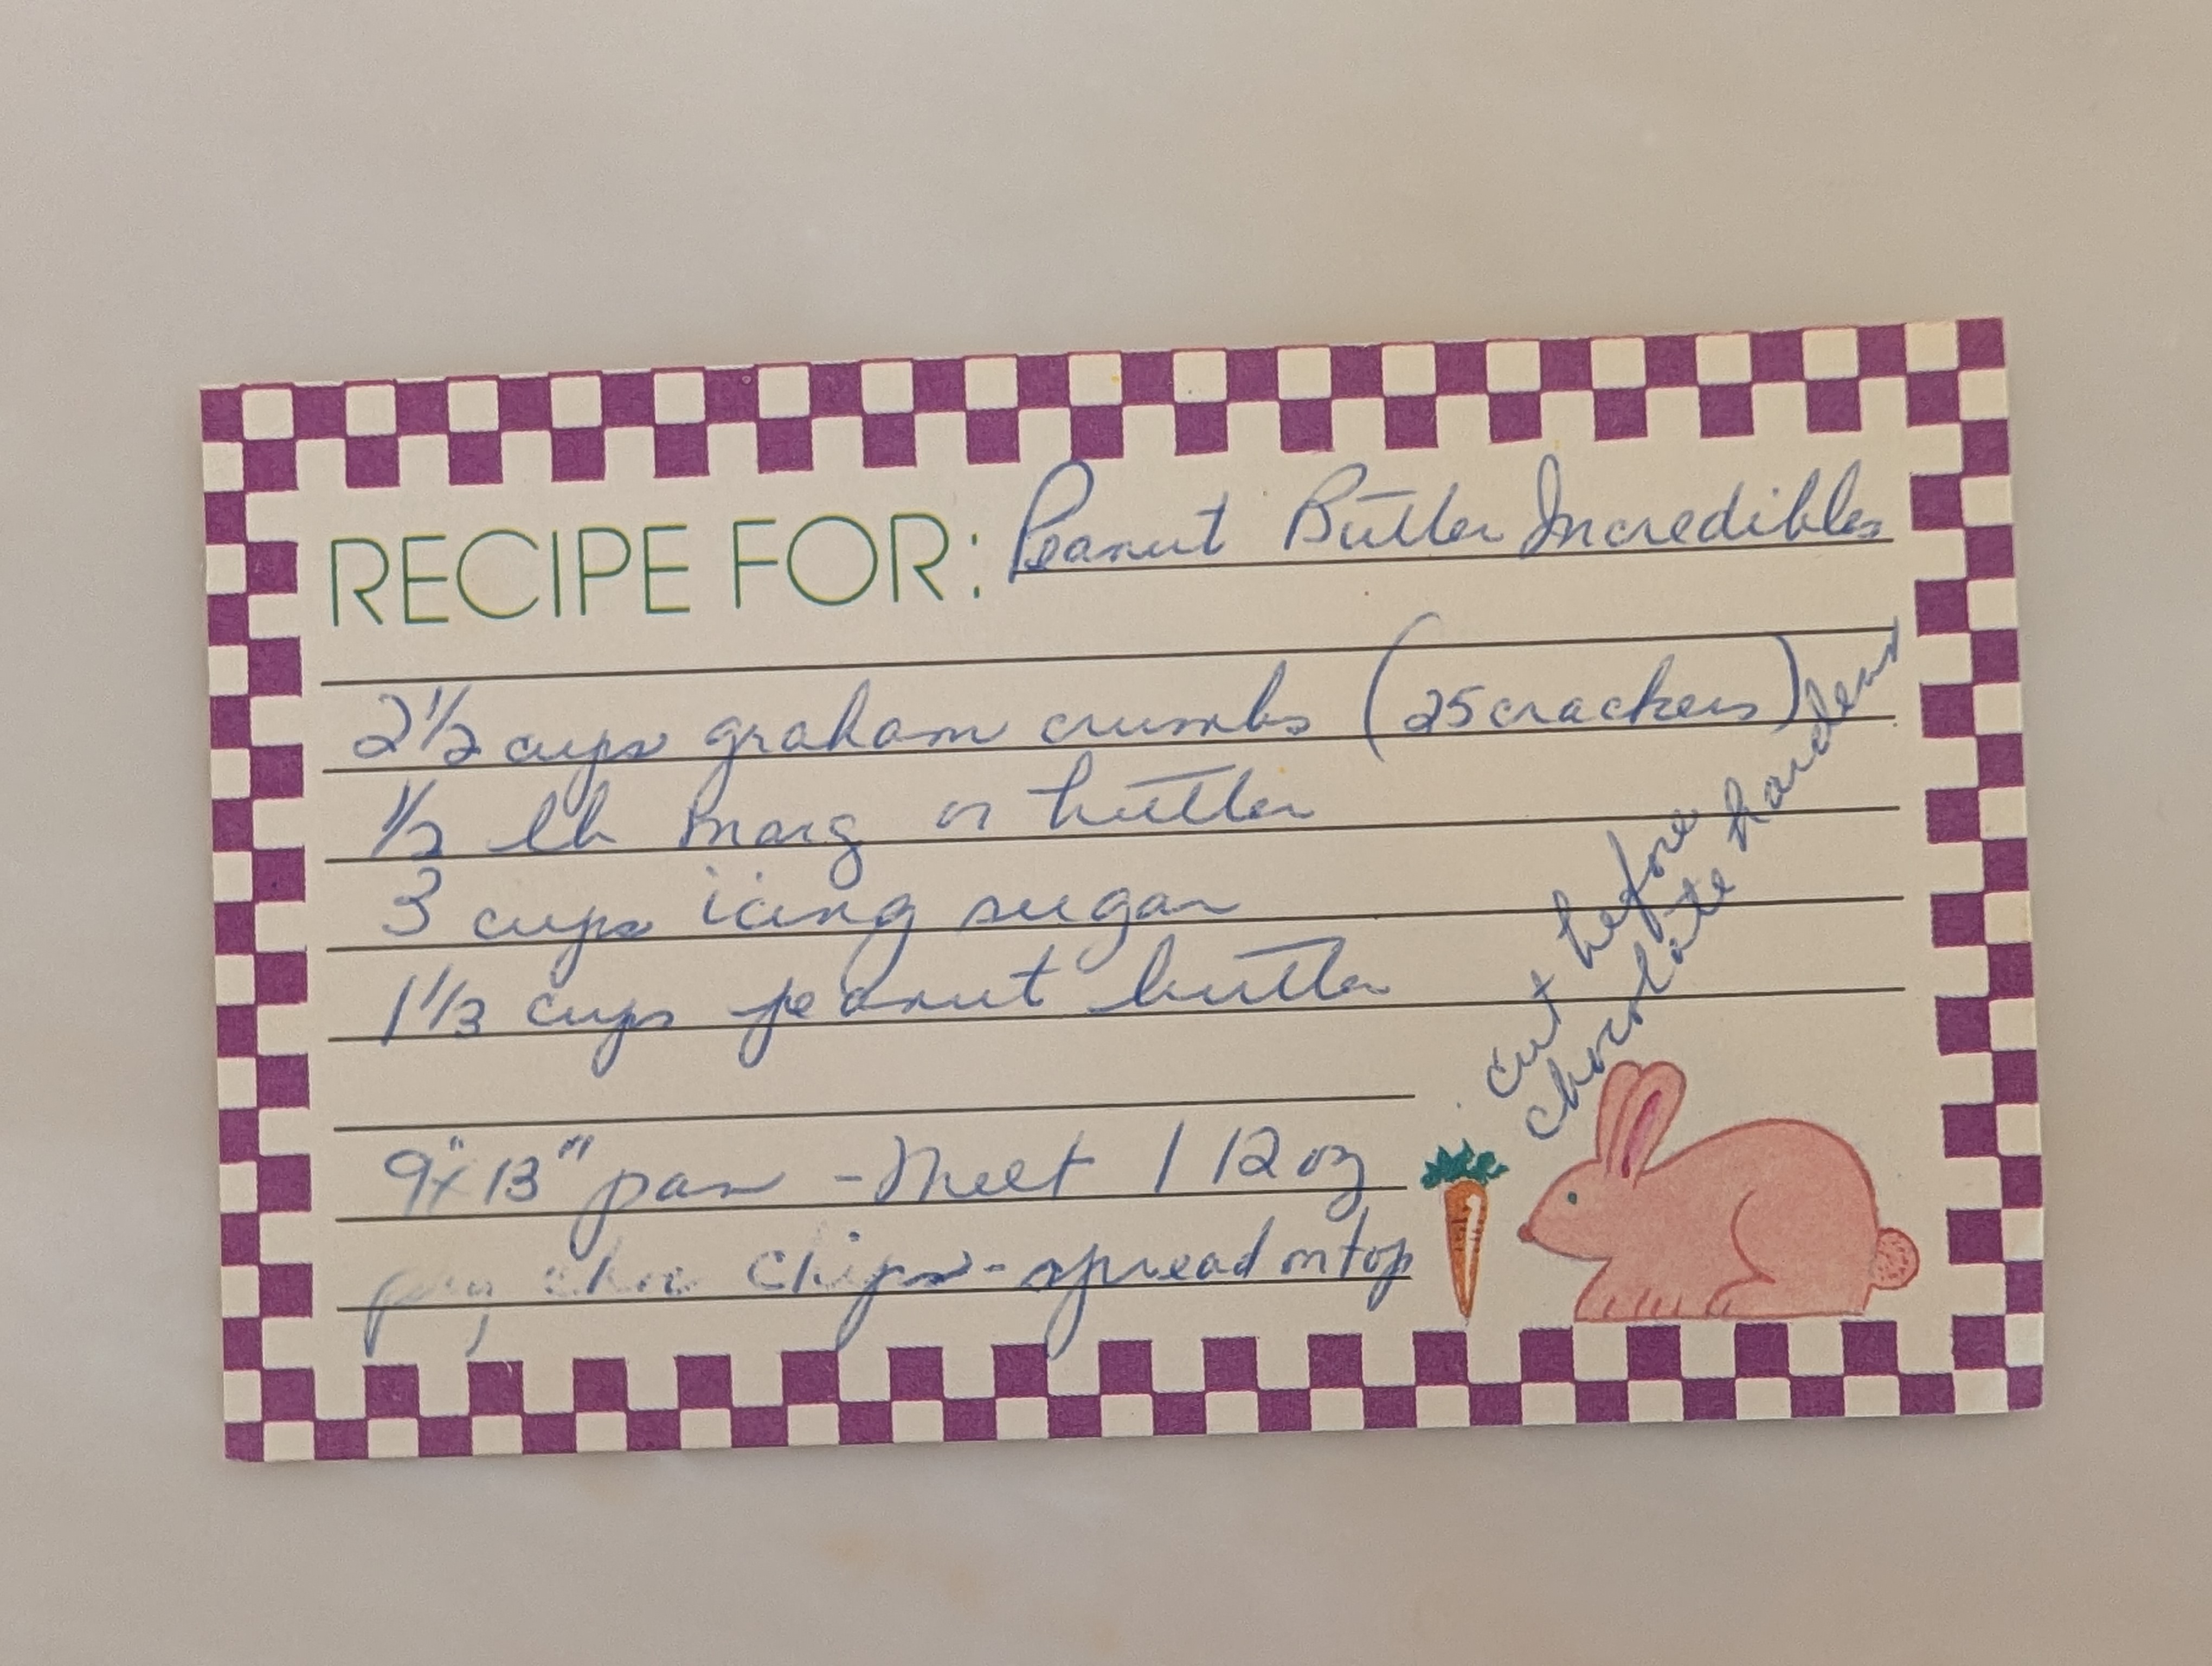 RECIPE FOR: Peanut Butter Incredibles
2 1/2 cups graham crumbs (25 crackers)
1/2 lb marg or butter
3 cups icing sugar
1 1/3 cups peanut butter
9"x 13" pan - Melt 1 12 oz
pkg choc chips - spread on top
cut before
chocolate hardens